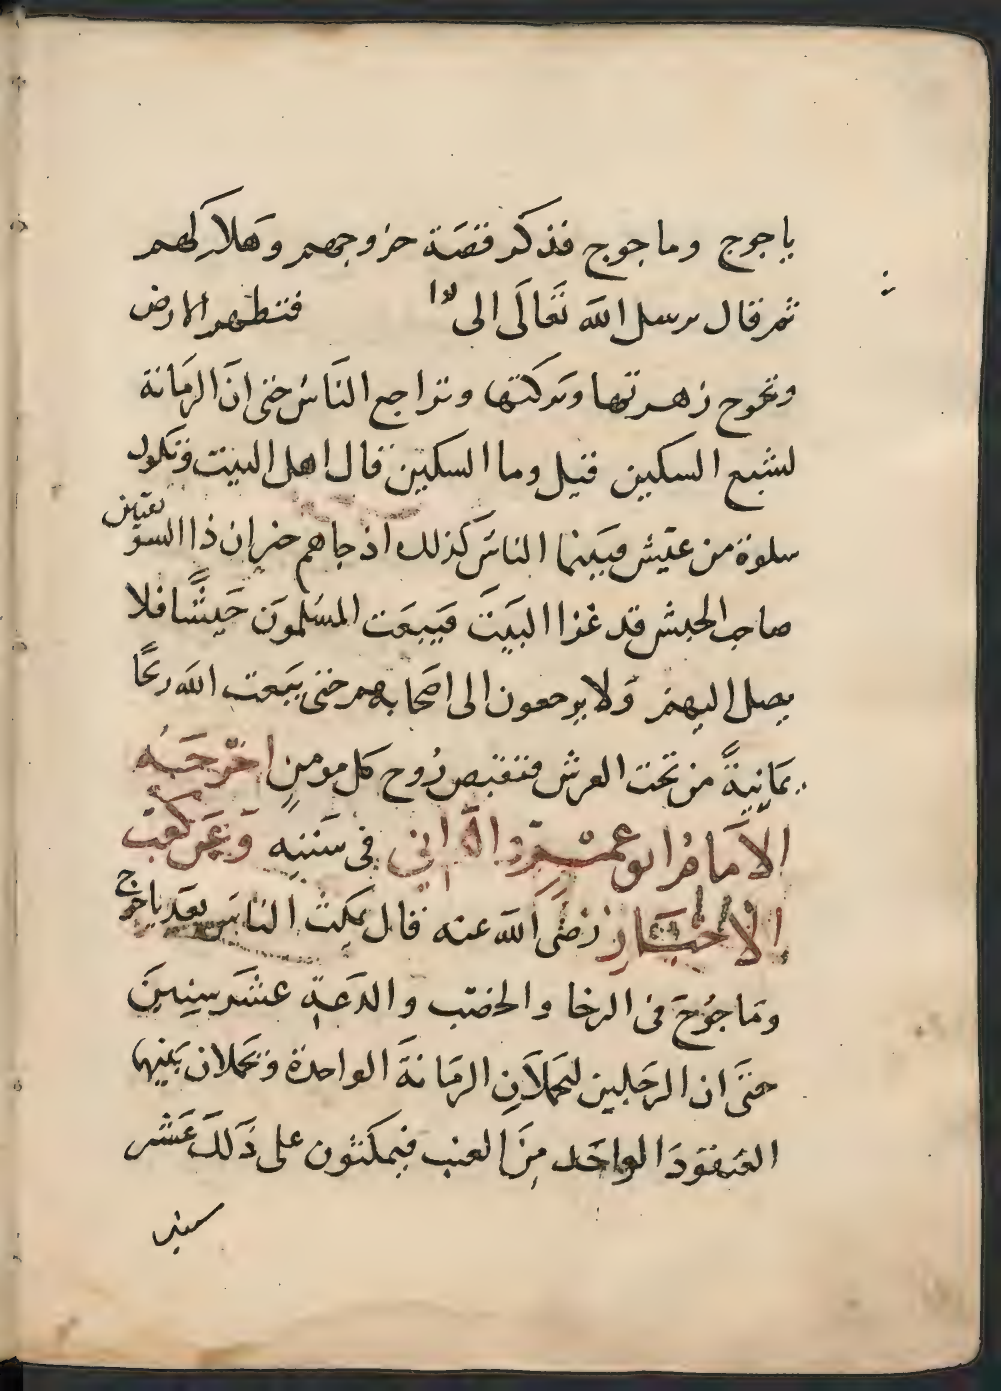 ياجوج وماجوج فذكر قصة خروجهم وهلاكهم
ثم قال يرسل الله تعالى الى فتطهر الارض
وتخرج زهرتها وبركتها وتراجع الناس حتى ان الرمانة
لتشبع السكين قيل وما السكين قال اهل البيت وتكون
سلوة من عيش فبينما الناس كذلك اذ جاهم خبر ان ذا السويقتين
صاحب الحبش قد غزا البيت فيبعث المسلمون جيشا فلا
يصل اليهم ولا يرجعون الى اصحابهم حتى يبعث الله ريحا
يمانية من تحت العرش فتقبض روح كل مومن اخرجه
الامام ابو عمرو الداني في سننه وعن كعب
الاحبار رضى الله عنه قال يمكث الناس بعد ياجوج
وماجوج في الرخا والخصب والدعة عشر سنين
حتى ان الرجلين ليحملان الرمانة الواحدة ويحملان بينهما
العنقود الواحد من العنب فيمكثون على ذلك عشر
سنين